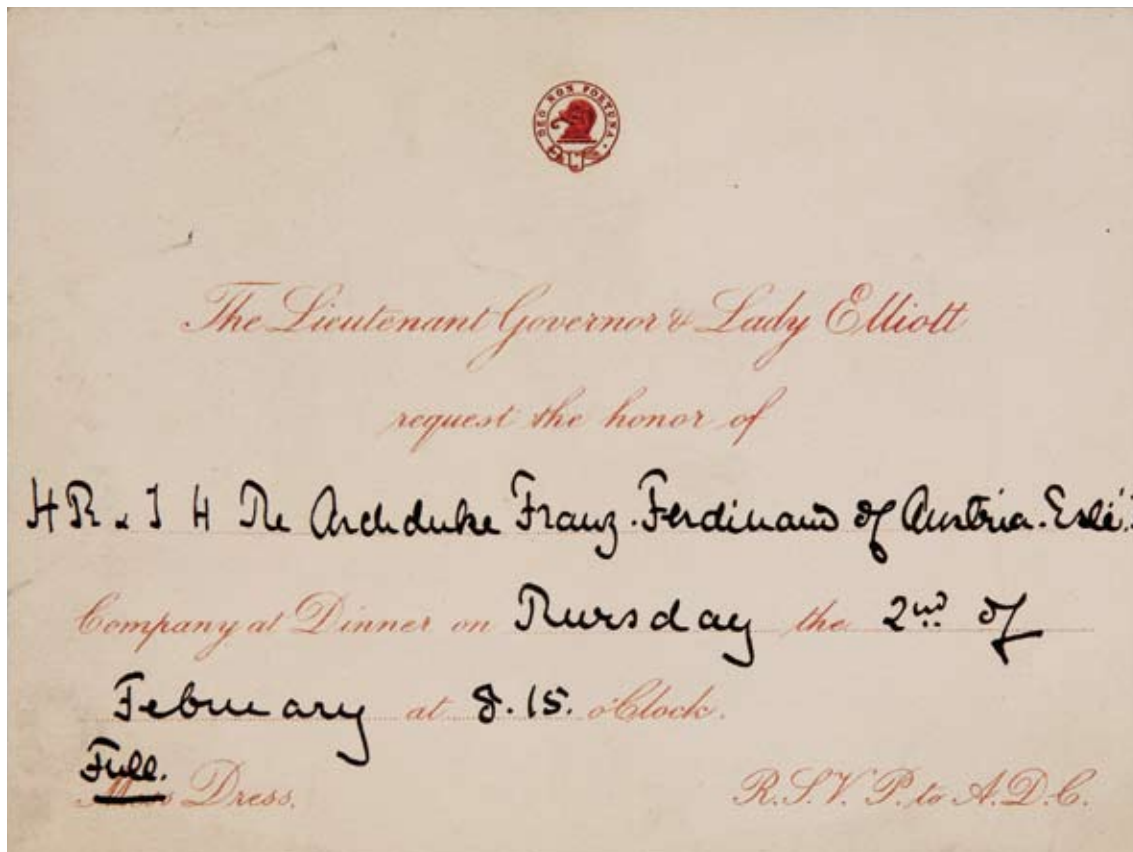 DEO NON FORTUNA
The Lieutenant Governor & Lady Elliott
request the honor of
H R & I H The Archduke Franz Ferdinand of Austria-Este's
Company at Dinner on Thursday the 2nd of
February at 8.15. o'Clock.
Full.
Dress. R.S.V.P. to A.D.C.